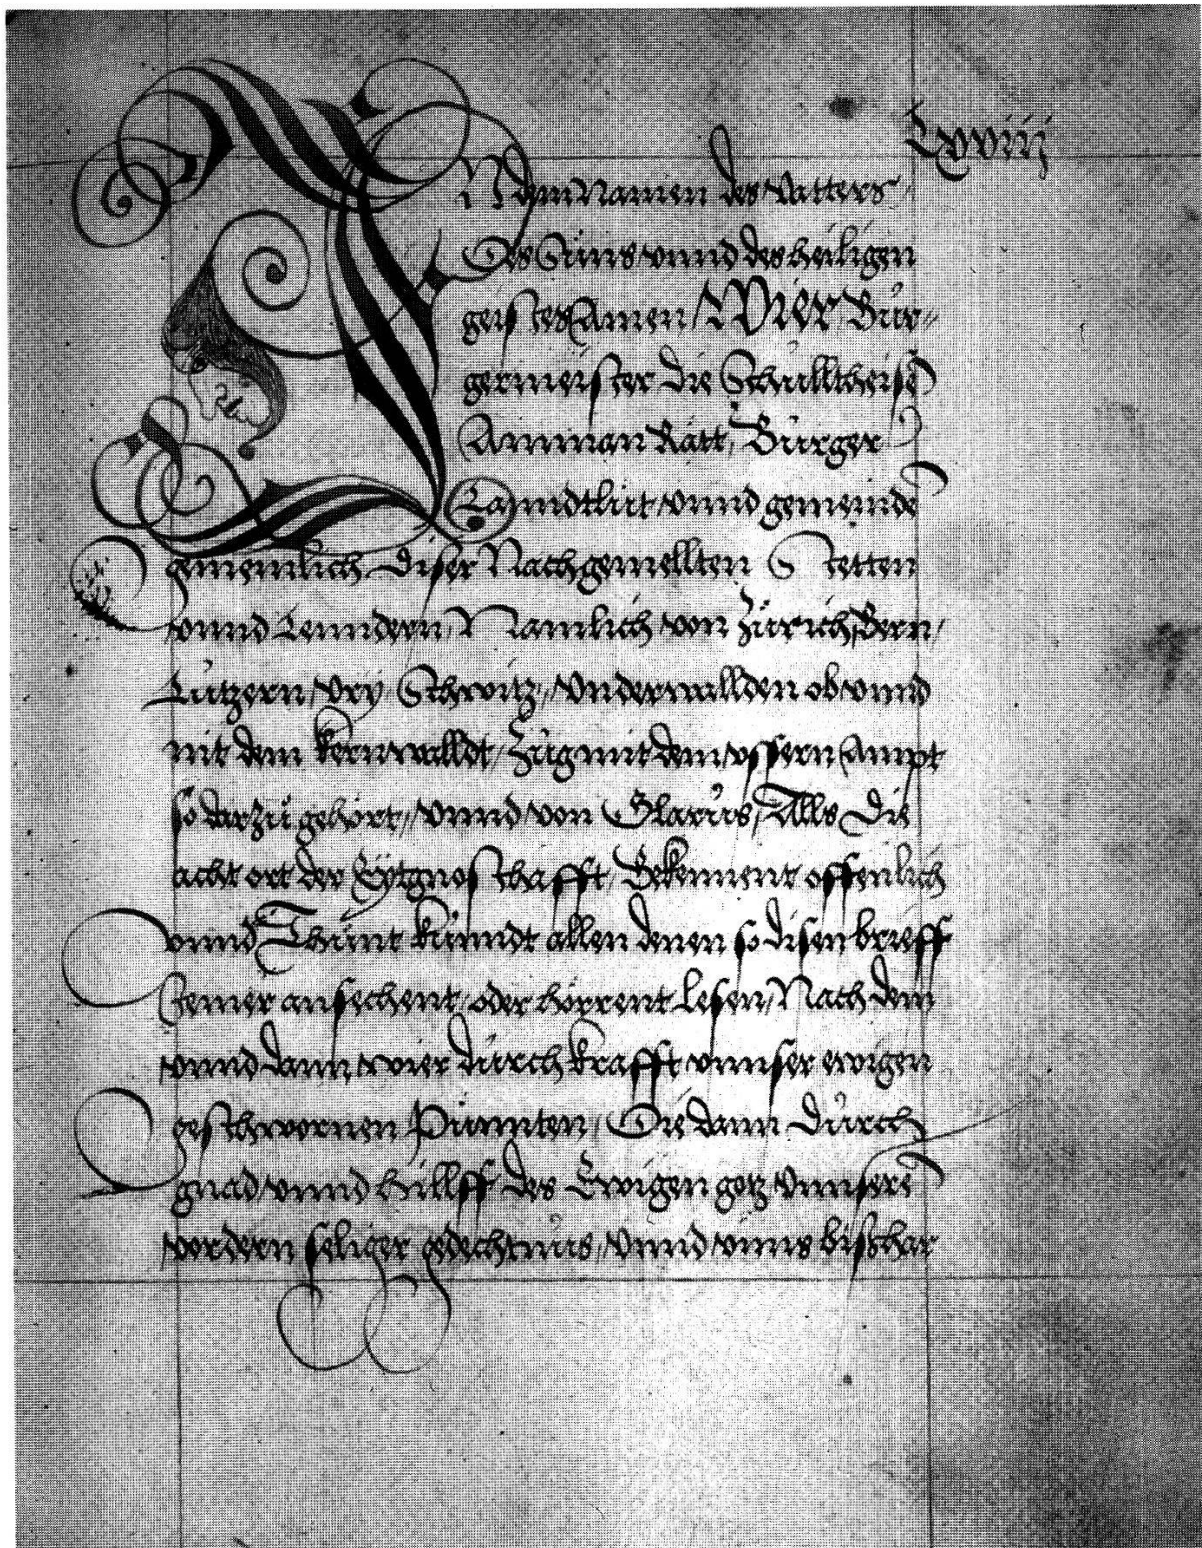 Lxviij
IN dem Namen des Vatters /
Des Suns vnnd des heiligen
geistes Amen / Wier Bur-
germeister die Schulltheisē
Amman Rätt, Burger
Lanndtlüt vnnd gemeinde
gemeinlich diser Nachgemellten Stetten
vnnd Lenndern, Namlich von Zürich, Bern,
Lutzern, Vry, Schwitz, Vnderwallden ob vnnd
nit dem kernwalldt, Zug mit dem vssern Ampt
so darzu gehört, vnnd von Glarus, Alls die
acht ort der Eytgnoschafft, Bekennent offenlich
vnnd Thunt kunndt allen denen so disen brieff
Jemer ansechent, oder hörrent lesen, Nach dem
vnnd dann wier durch krafft vnnser ewigen
geschwornen Pünnten, Die dann durch
gnad vnnd hillff des Ewigen gotz vnnserē
vordern seliger gedechtnus, vnnd vnns bishar